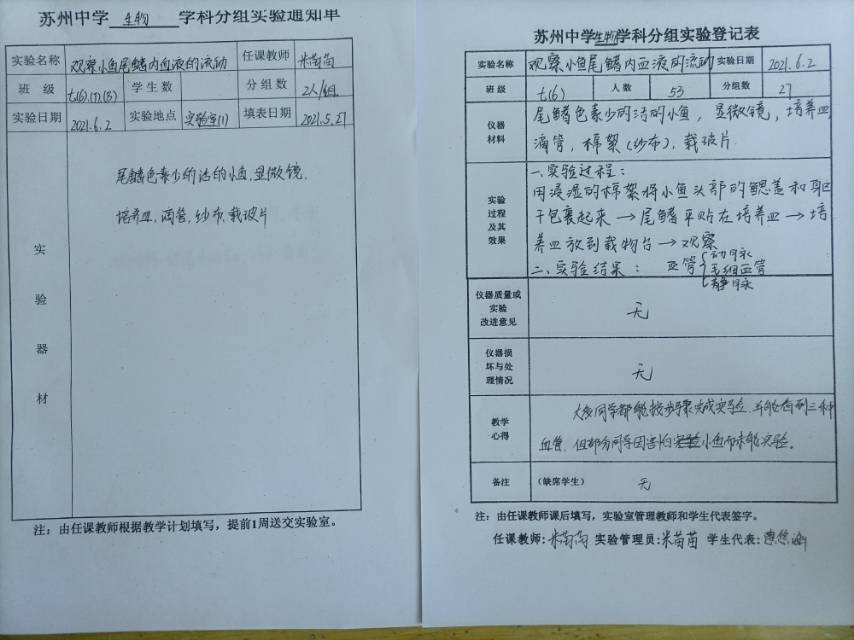 苏州中学 生物 学科分组实验通知单
实验名称 观察小鱼尾鳍内血液的流动 任课教师 米苗苗
班 级 七(6).(7).(8) 学生数 分组数 2人/组
实验日期 2021.6.2 实验地点 实验室(1) 填表日期 2021.5.27
实验器材
尾鳍色素少的活的小鱼,显微镜,
培养皿,滴管,纱布,载玻片
注:由任课教师根据教学计划填写,提前1周送交实验室。
苏州中学生物学科分组实验登记表
实验名称 观察小鱼尾鳍内血液的流动 实验日期 2021.6.2
班 级 七(6) 人 数 53 分组数 27
仪器材料
尾鳍色素少的活的小鱼,显微镜,培养皿
滴管,棉絮(纱布),载玻片
实验过程及其效果
一、实验过程:
用浸湿的棉絮将小鱼头部的鳃盖和躯
干包裹起来→尾鳍平贴在培养皿→培
养皿放到载物台→观察
二、实验结果: 血管{动脉
毛细血管
静脉
仪器质量或实验改进意见 无
仪器损坏与处理情况 无
教学心得
同学都能按步骤完成实验,并能看到三种
血管,但部分同学因害怕小鱼而未能实验。
备注 (缺席学生) 无
注:由任课教师课后填写,实验室管理教师和学生代表签字。
任课教师:米苗苗 实验管理员:米苗苗 学生代表: